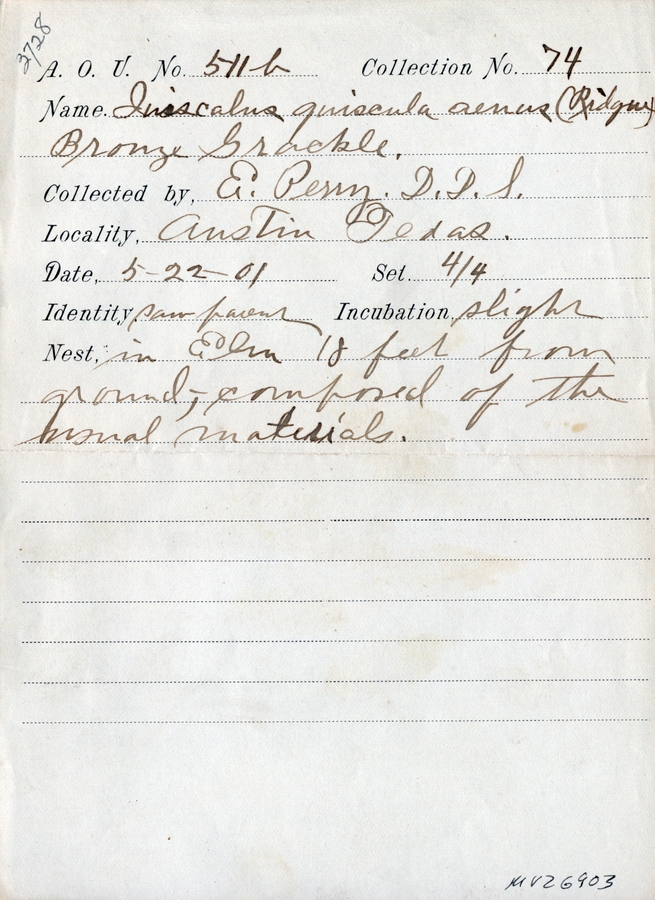 3728
A. O. U. No. 511b Collection No. 74
Name. Quiscalus quiscula aeneus (Ridgw)
Bronze Grackle.
Collected by, E. Perry. D.D.S.
Locality, Austin Texas.
Date, 5-22-01 Set. 4/4
Identity, saw parent Incubation, slight
Nest, in Elm 18 feet from
ground; composed of the
usual materials.
MVZ 6903